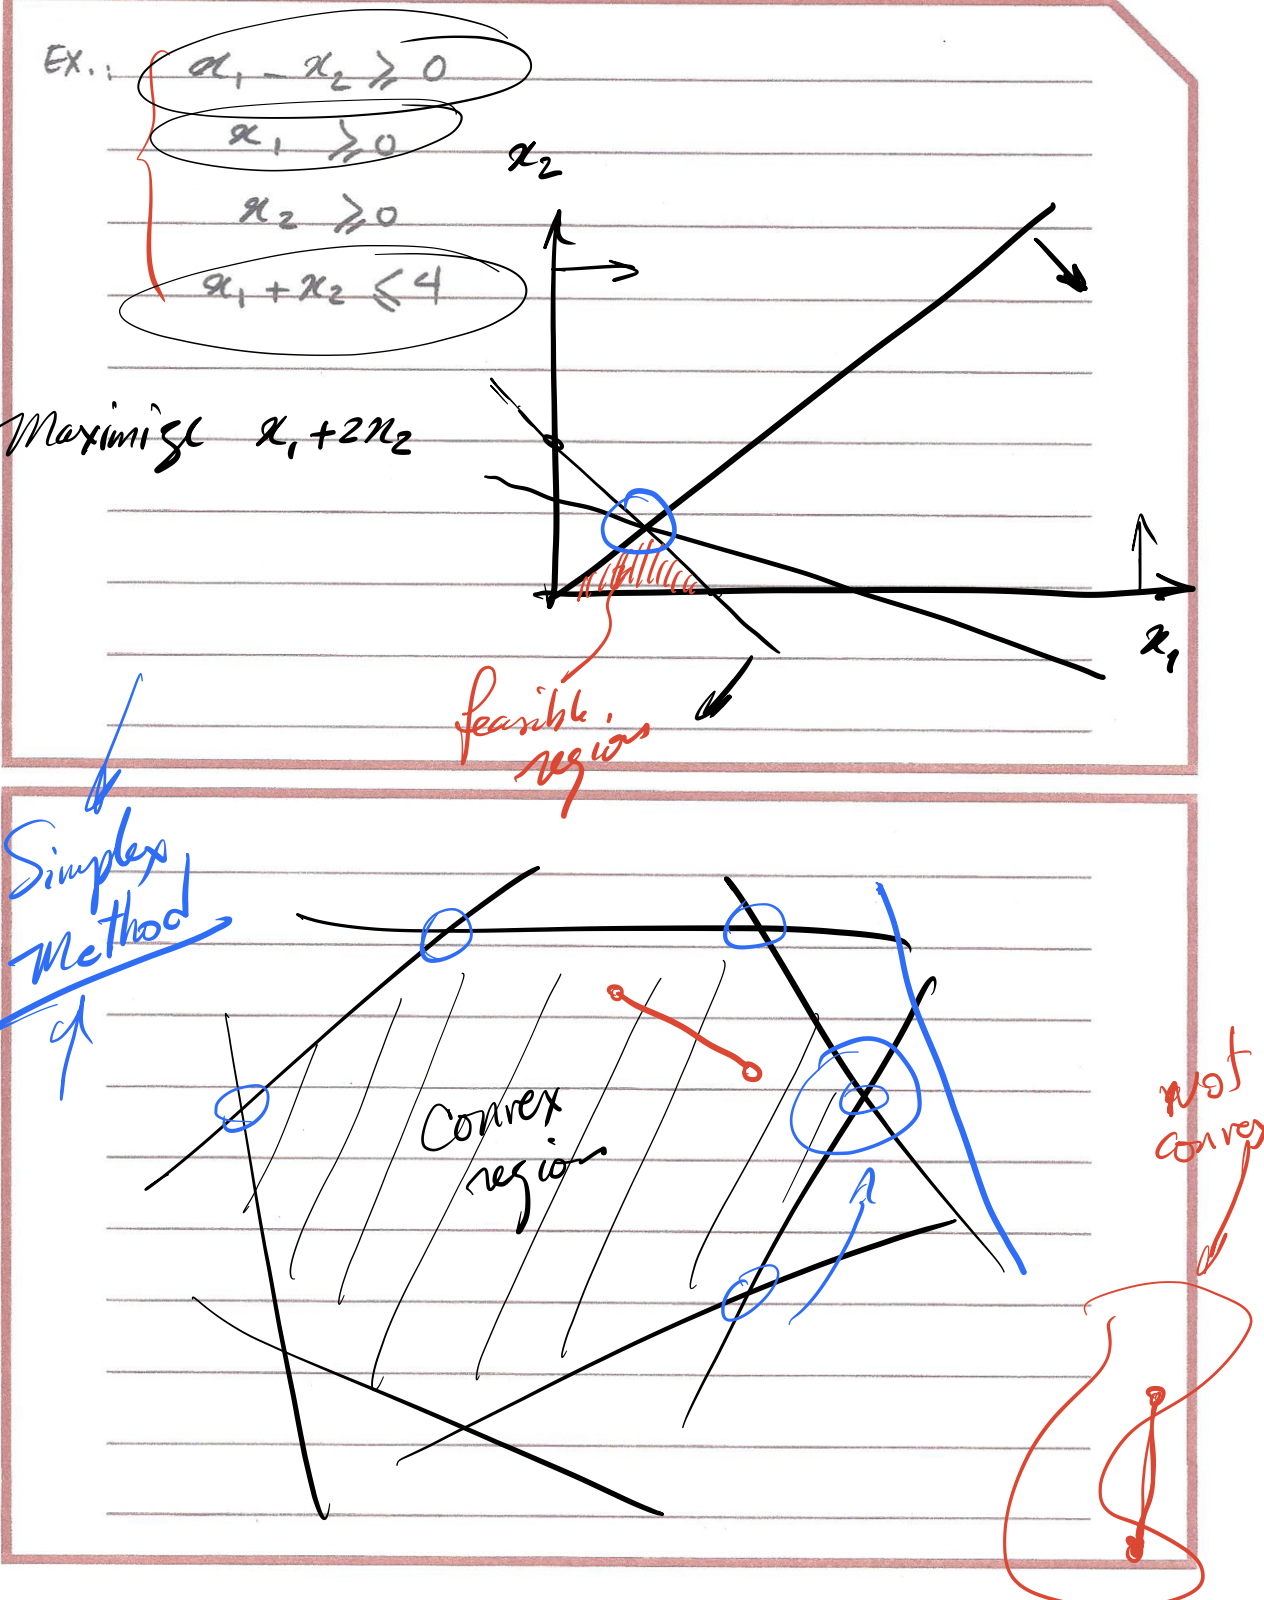 EX.: x₁ - x₂ ⩾ 0
x₁ ⩾ 0
x₂ ⩾ 0
x₁ + x₂ ⩽ 4
Maximize x₁ + 2x₂
x₂
x₁
feasible
region
Simplex
Method
Convex
region
not
convex